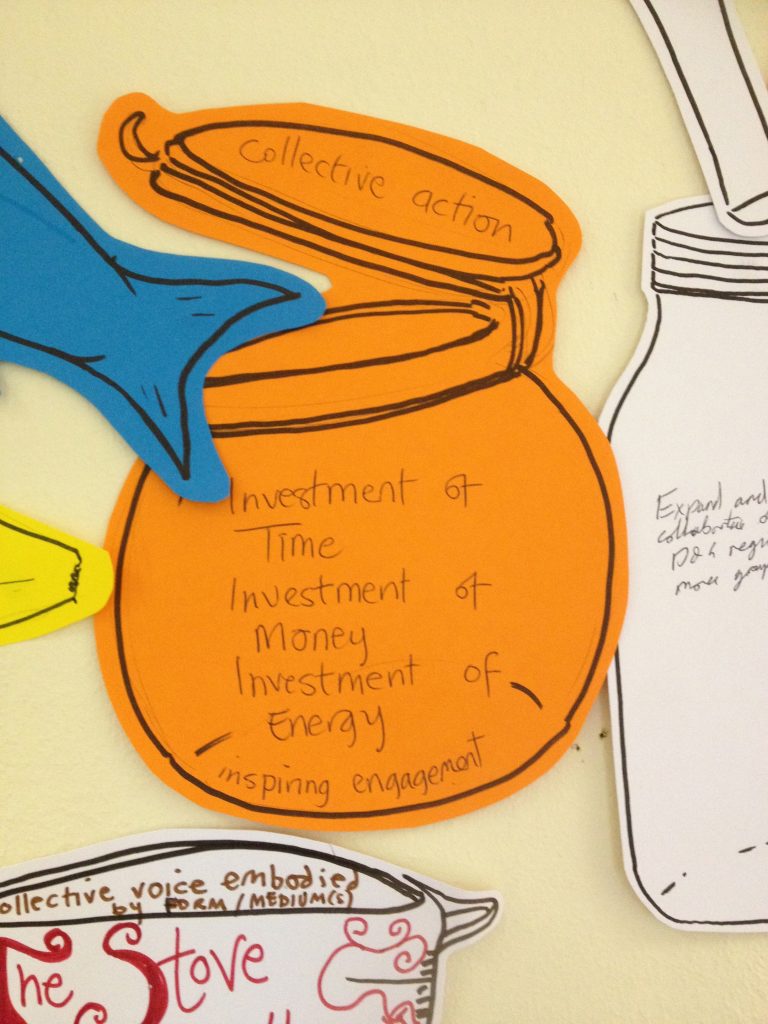 Collective action
Investment of
Time
Investment of
Money
Investment of
Energy
inspiring engagement
Expand and
more
ollective voice embodied
by FORM / MEDIUM(S)
The Stove